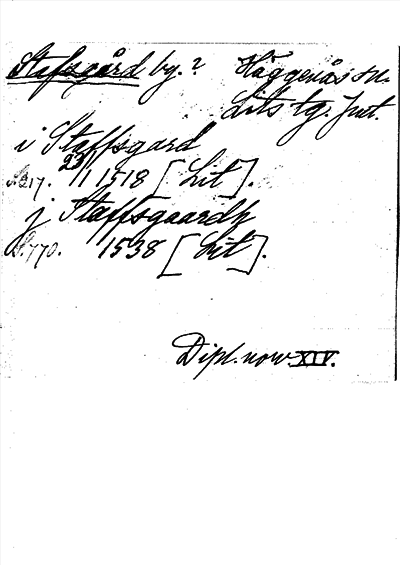 Stafsgård by.? Häggenås sn.
Lits tg. Jmt.
i Staffsgard
S. 217. 23/11 1518 [Lit].
j Staffsgaardh
S. 770. 1538 [Lit].
Dipl. norv. XIV.